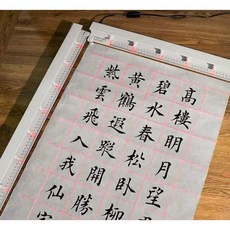 高樓明月望
碧水春松臥柳
黃鶴遐蹤開勝
紫雲飛入我仙